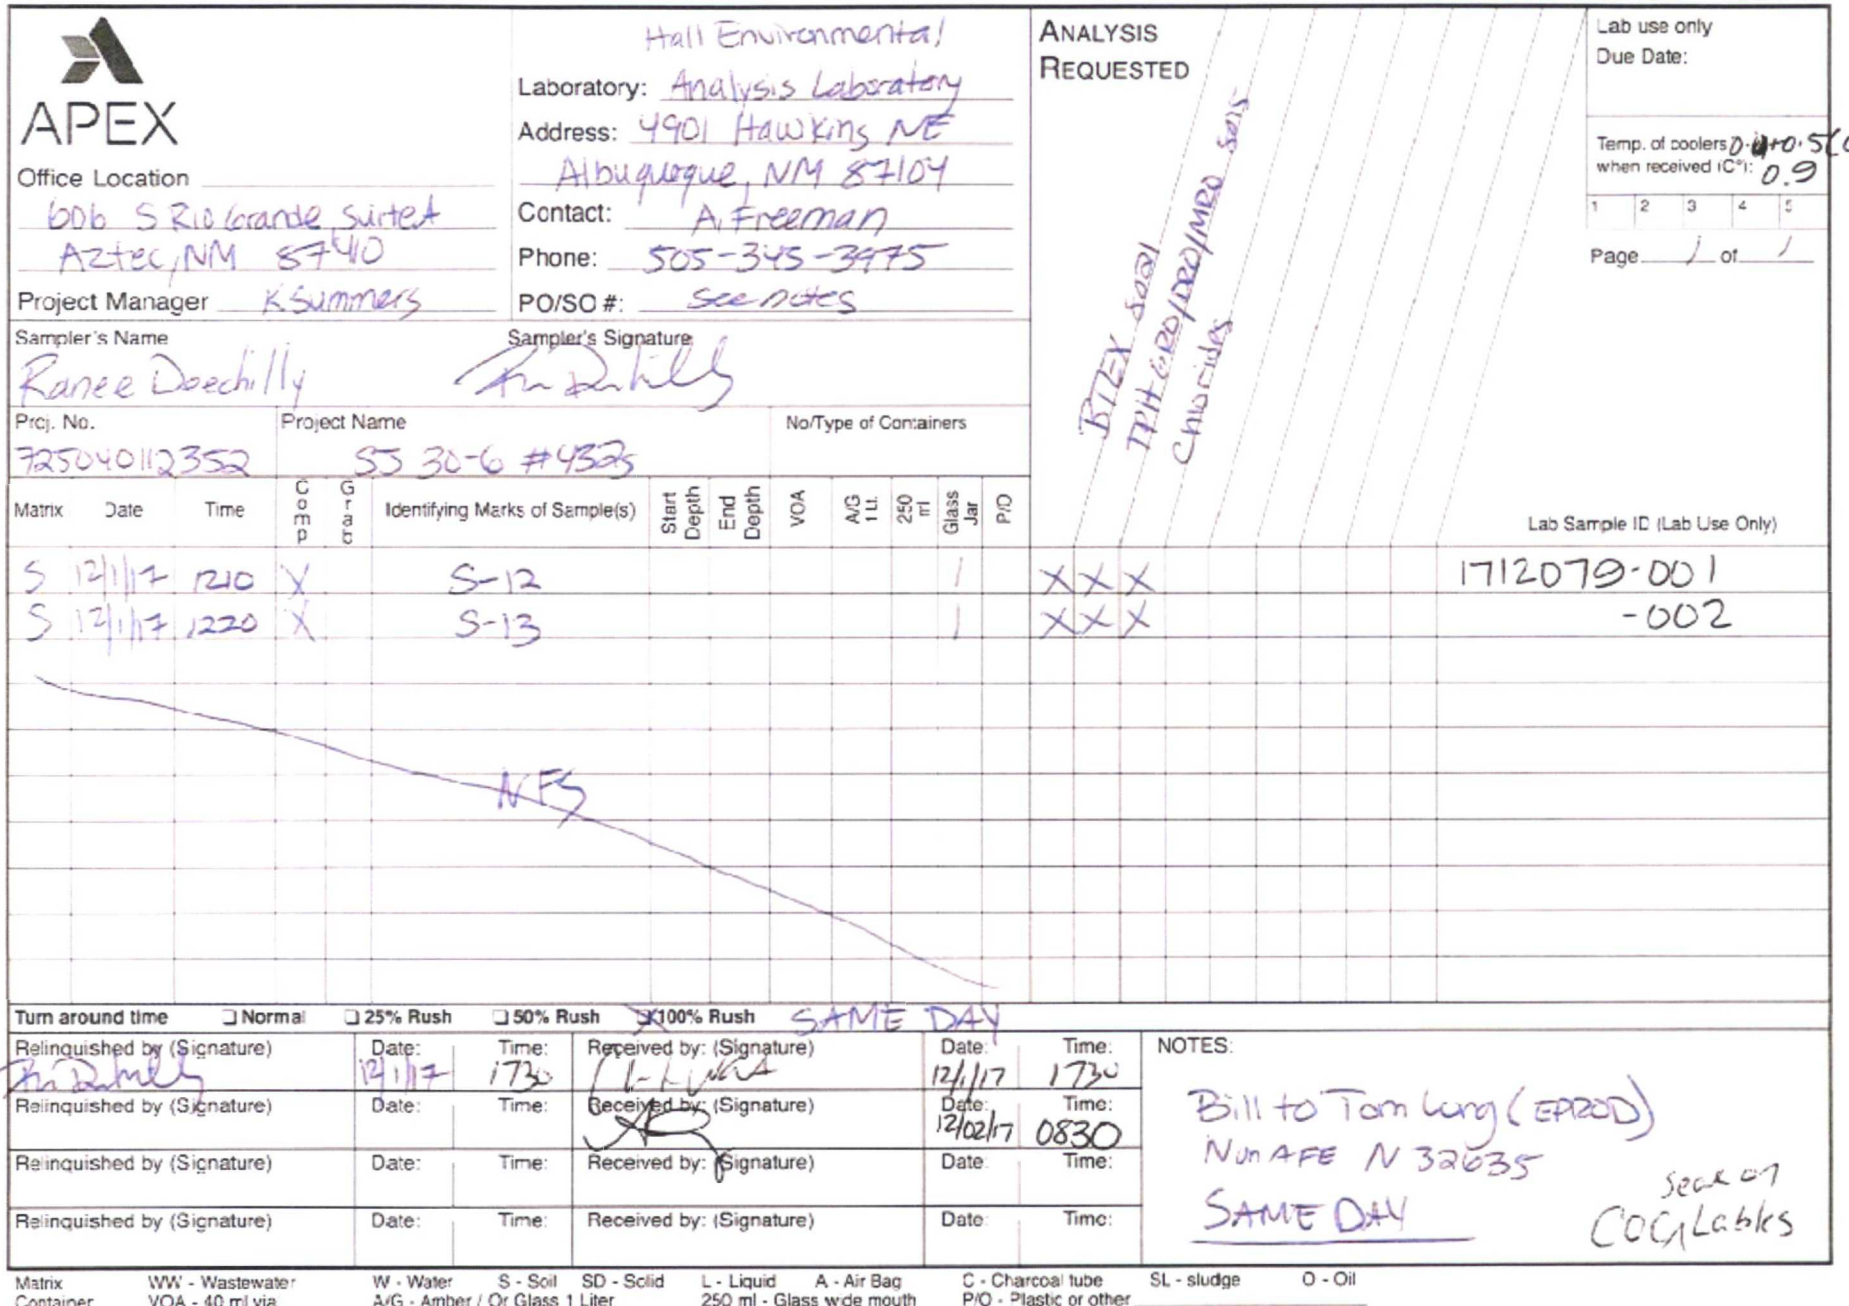 APEX
Office Location
606 S Rio Grande, Suite A
Aztec, NM 87410
Project Manager K Summers
Hall Environmental
Laboratory: Analysis Laboratory
Address: 4901 Hawkins NE
Albuquerque, NM 87104
Contact: A. Freeman
Phone: 505-345-3975
PO/SO #: see notes
ANALYSIS
REQUESTED
BTEX 8021
TPH GRO/DRO/MRO 8015
Chlorides
Lab use only
Due Date:
Temp. of coolers
when received (C°): 0.9
1 2 3 4 5
Page 1 of 1
Sampler's Name
Ranee Deechilly
Sampler's Signature
Proj. No.
725040112352
Project Name
SJ 30-6 #432s
No/Type of Containers
Matrix Date Time Comp Grab Identifying Marks of Sample(s) Start Depth End Depth VOA A/G 1 Lt. 250 ml Glass Jar P/O Lab Sample ID (Lab Use Only)
S 12/1/17 1210 X S-12 1 X X X 1712079-001
S 12/1/17 1220 X S-13 1 X X X -002
NFS
Turn around time Normal 25% Rush 50% Rush X 100% Rush SAME DAY
Relinquished by (Signature) Date: 12/1/17 Time: 1730 Received by: (Signature) Date: 12/1/17 Time: 1730
Relinquished by (Signature) Date: Time: Received by: (Signature) Date: 12/02/17 Time: 0830
Relinquished by (Signature) Date: Time: Received by: (Signature) Date: Time:
Relinquished by (Signature) Date: Time: Received by: (Signature) Date: Time:
NOTES:
Bill to Tom Long (EPROD)
Non AFE N 32635
SAME DAY
Matrix WW - Wastewater W - Water S - Soil SD - Solid L - Liquid A - Air Bag C - Charcoal tube SL - sludge O - Oil
Container VOA - 40 ml via A/G - Amber / Or Glass 1 Liter 250 ml - Glass wide mouth P/O - Plastic or other